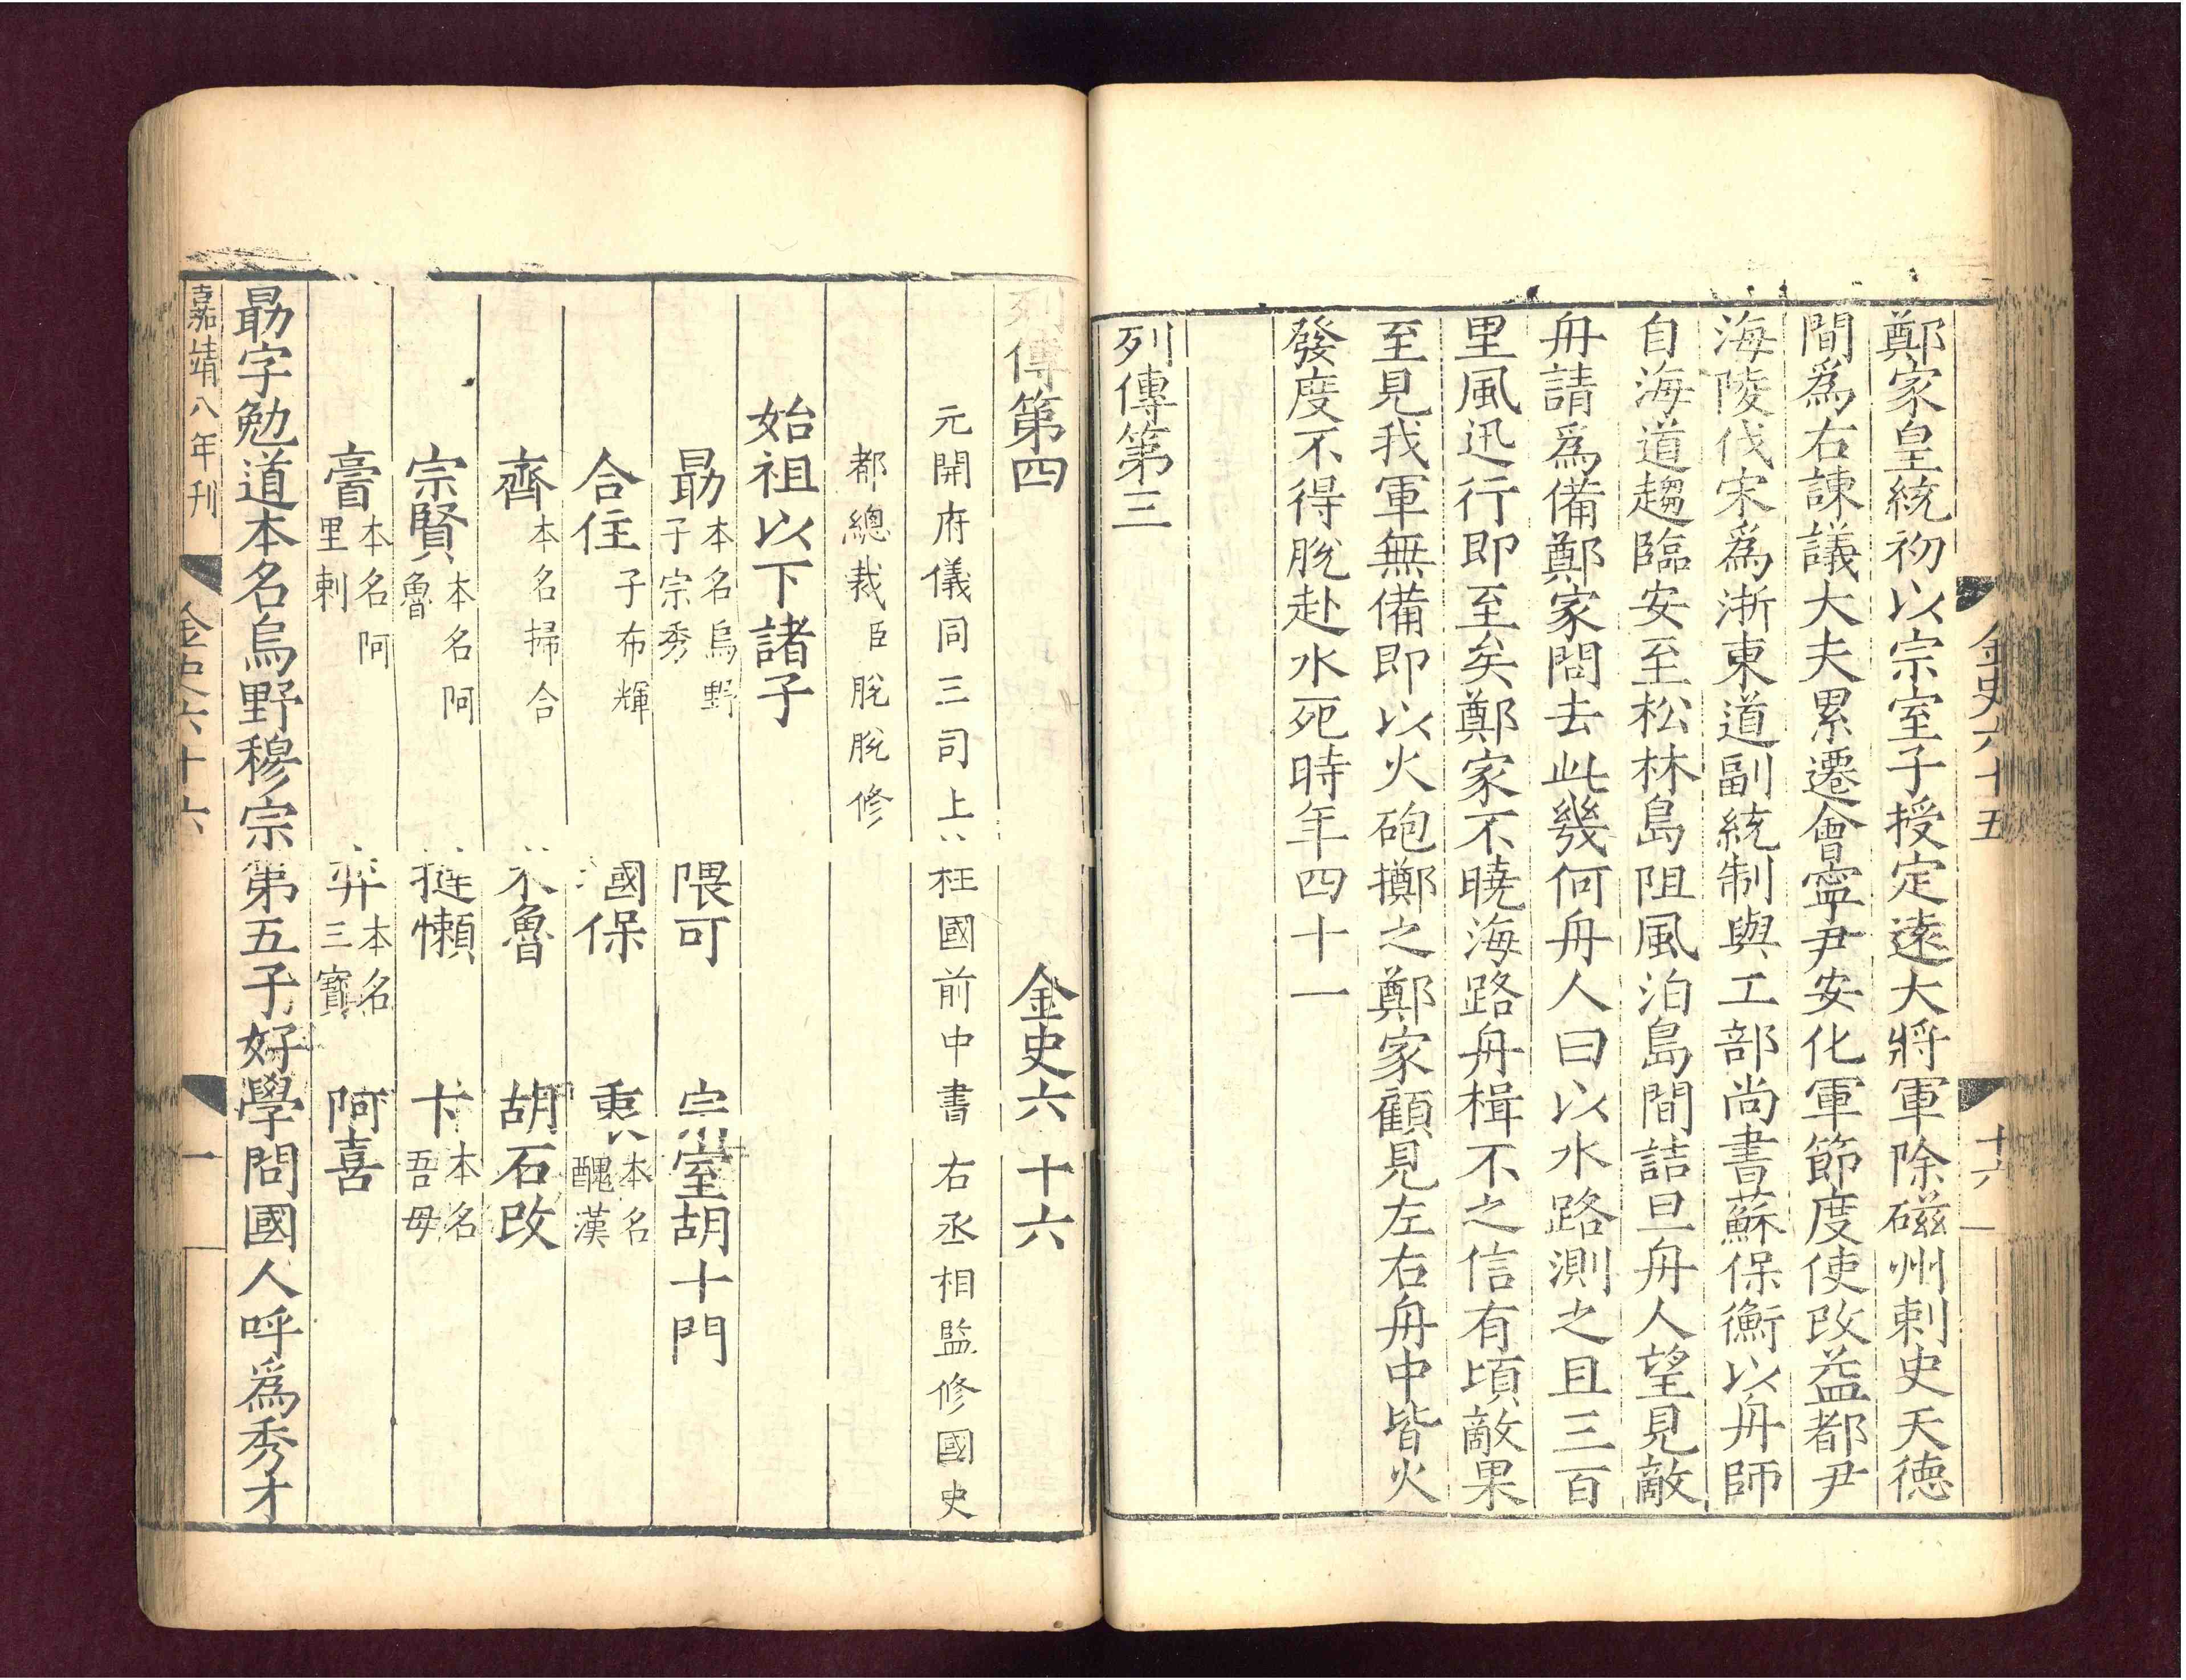 金史六十五
十六
鄭家皇統初以宗室子授定遠大將軍除磁州刺史天德
間爲右諫議大夫累遷會寧尹安化軍節度使改益都尹
海陵伐宋爲浙東道副統制與工部尚書蘇保衡以舟師
自海道趨臨安至松林島阻風泊島間詰旦舟人望見敵
舟請爲備鄭家問去此幾何舟人曰以水路測之且三百
里風迅行即至矣鄭家不曉海路舟楫不之信有頃敵果
至見我軍無備即以火砲擲之鄭家顧見左右舟中皆火
發度不得脫赴水死時年四十一
列傳第三
列傳第四 金史六十六
元開府儀同三司上柱國前中書右丞相監修國史
都總裁臣脫脫修
始祖以下諸子
勗本名烏野子宗秀 隈可 宗室胡十門
合住子布輝 國保 衷本名醜漢
齊本名掃合 朮魯 胡石改
宗賢本名阿魯 撻懶 卞本名吾母
膏本名阿里剌 弈本名三寶 阿喜
勗字勉道本名烏野穆宗第五子好學問國人呼爲秀才
嘉靖八年刊
金史六十六
一